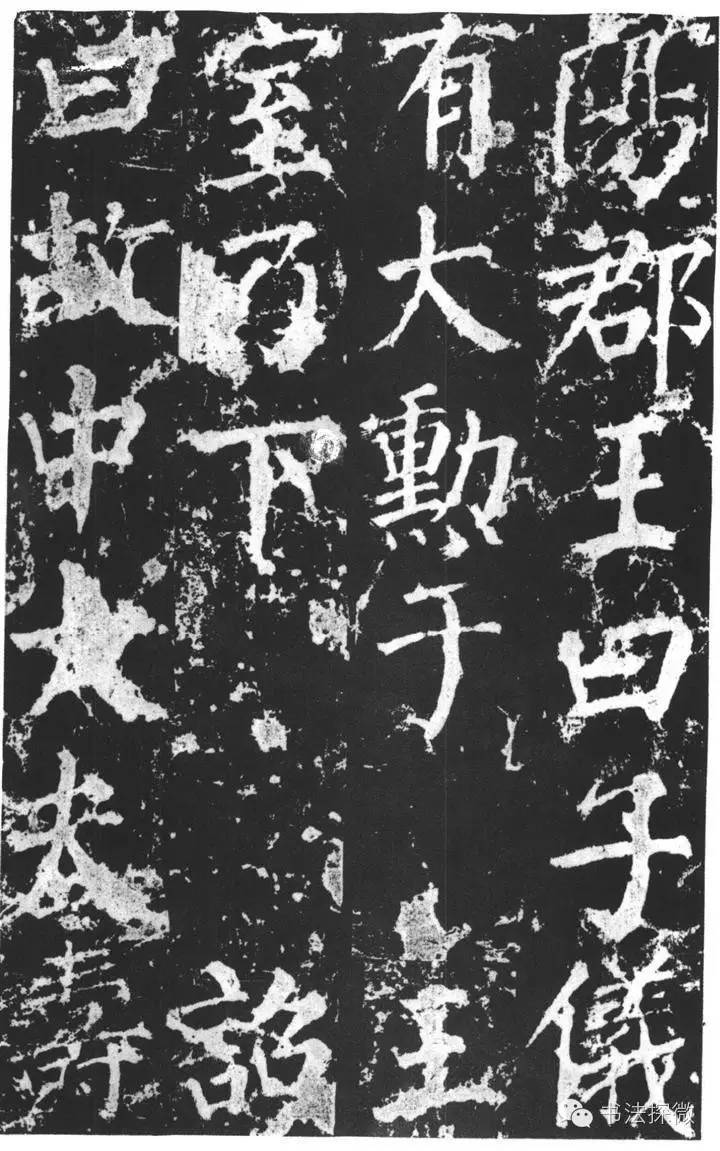 陽郡王曰子儀
有大勲于王
室乃下詔
曰故中大夫壽
书法探微